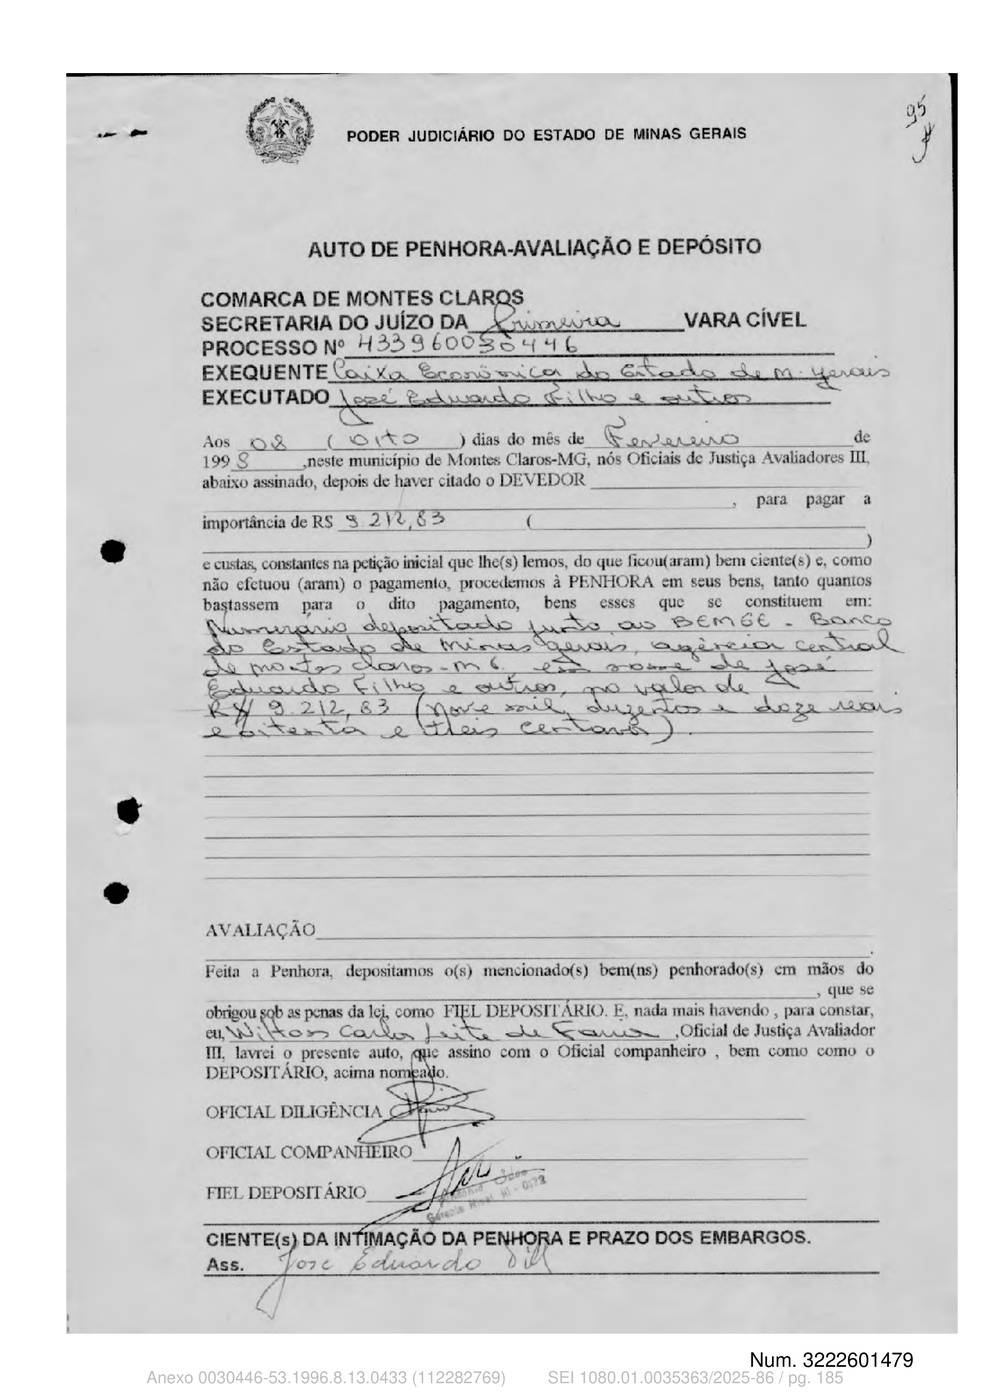 95
PODER JUDICIÁRIO DO ESTADO DE MINAS GERAIS
AUTO DE PENHORA-AVALIAÇÃO E DEPÓSITO
COMARCA DE MONTES CLAROS
SECRETARIA DO JUÍZO DA Primeira VARA CÍVEL
PROCESSO Nº 433960030446
EXEQUENTE Caixa Econômica do Estado de M. Gerais
EXECUTADO José Eduardo Filho e outros
Aos 08 ( Oito ) dias do mês de Fevereiro de
1998 ,neste município de Montes Claros-MG, nós Oficiais de Justiça Avaliadores III,
abaixo assinado, depois de haver citado o DEVEDOR
, para pagar a
importância de R$ 9.212,83 (
)
e custas, constantes na petição inicial que lhe(s) lemos, do que ficou(aram) bem ciente(s) e, como
não efetuou (aram) o pagamento, procedemos à PENHORA em seus bens, tanto quantos
bastassem para o dito pagamento, bens esses que se constituem em:
Numerário depositado junto ao BEMGE - Banco
do Estado de Minas Gerais, agência central
de Montes Claros-MG. em nome de José
Eduardo Filho e outros, no valor de
R$ 9.212,83 (Nove mil, duzentos e doze reais
e oitenta e três centavos).
AVALIAÇÃO
.
Feita a Penhora, depositamos o(s) mencionado(s) bem(ns) penhorado(s) em mãos do
, que se
obrigou sob as penas da lei, como FIEL DEPOSITÁRIO. E, nada mais havendo , para constar,
eu, Wilton Carlos Leite de Faria ,Oficial de Justiça Avaliador
III, lavrei o presente auto, que assino com o Oficial companheiro , bem como como o
DEPOSITÁRIO, acima nomeado.
OFICIAL DILIGÊNCIA
OFICIAL COMPANHEIRO
FIEL DEPOSITÁRIO
CIENTE(s) DA INTIMAÇÃO DA PENHORA E PRAZO DOS EMBARGOS.
Ass. José Eduardo
Num. 3222601479
Anexo 0030446-53.1996.8.13.0433 (112282769) SEI 1080.01.0035363/2025-86 / pg. 185